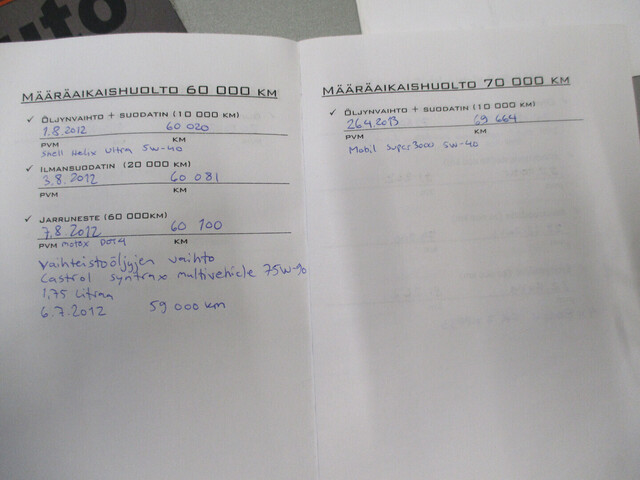 uto
MÄÄRÄAIKAISHUOLTO 60 000 KM
✓ ÖLJYNVAIHTO + SUODATIN (10 000 KM)
1.8.2012 60 020
PVM KM
Shell Helix Ultra 5w-40
✓ ILMANSUODATIN (20 000 KM)
3.8.2012 60 081
PVM KM
✓ JARRUNESTE (60 000KM)
7.8.2012 60 100
PVM motox DOT4 KM
Vaihteistoöljyjen vaihto
Castrol syntrax multivehicle 75w-90
1,75 Litraa
6.7.2012 59 000 km
MÄÄRÄAIKAISHUOLTO 70 000 KM
✓ ÖLJYNVAIHTO + SUODATIN (10 000 KM)
26.4.2013 69 664
PVM KM
Mobil super3000 5w-40